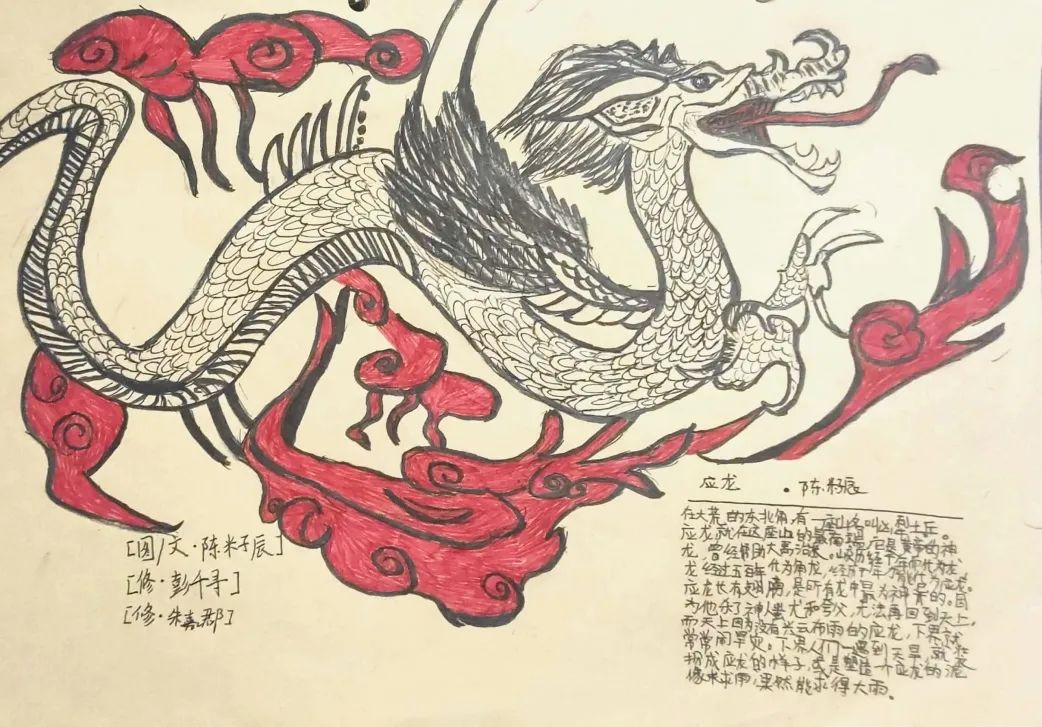 应龙 · 陈籽辰
在大荒的东北角,有一座山名叫凶犁土丘。
应龙就在这座山的最南端,它是黄帝的神
龙,曾经帮助大禹治
龙经过五百年化为角龙,经历千年才能化为应龙。
应龙长有翅膀,是所有龙中最为神
为他杀了神人蚩尤和夸父,无法再回到天上,
而天上因为没有兴云布雨的应龙,下界就
常常闹旱灾。下界人们一遇到天旱,就装
扮成应龙的样子,或是塑造一个应龙的泥
像来求雨,果然能求得大雨。
[图/文·陈籽辰]
[修·彭千寻]
[修·朱嘉郡]